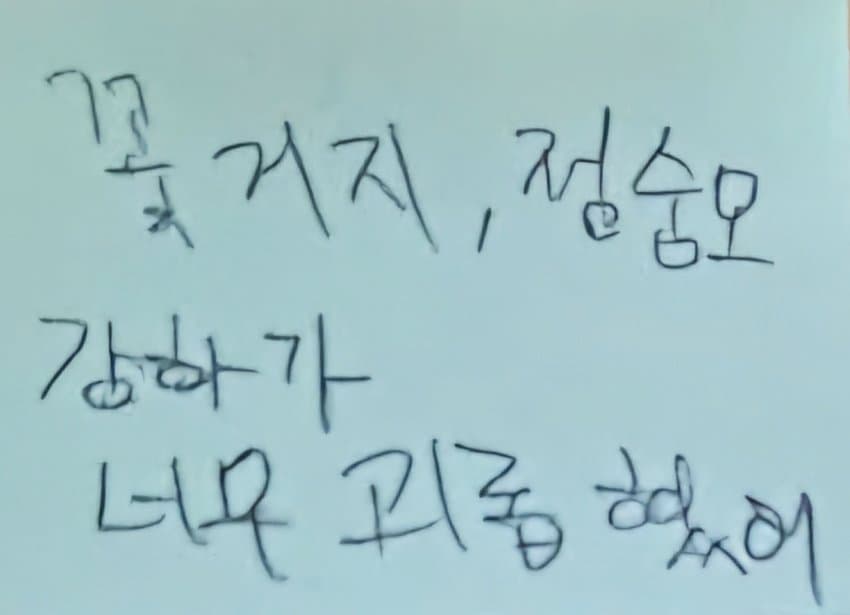 꽃거지, 정승모
강하가
너무 괴롭혔어